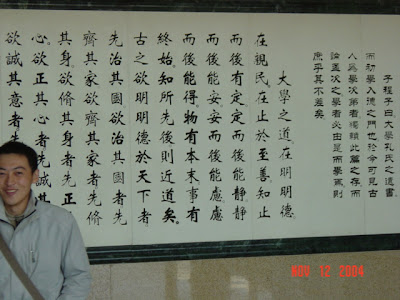 子程子曰大學孔氏之遺書
而初學入德之門也於今可見古
人為學次第者獨賴此篇之存而
論孟次之學者必由是而學焉則
庶乎其不差矣
大學之道在明明德
在親民在止於至善知止
而後有定定而後能靜靜
而後能安安而後能慮慮
而後能得物有本末事有
終始知所先後則近道矣
古之欲明明德於天下者
先治其國欲治其國者先
齊其家欲齊其家者先脩
其身欲脩其身者先正
心欲正其心者先誠
欲誠其意者先
NOV 12 2004